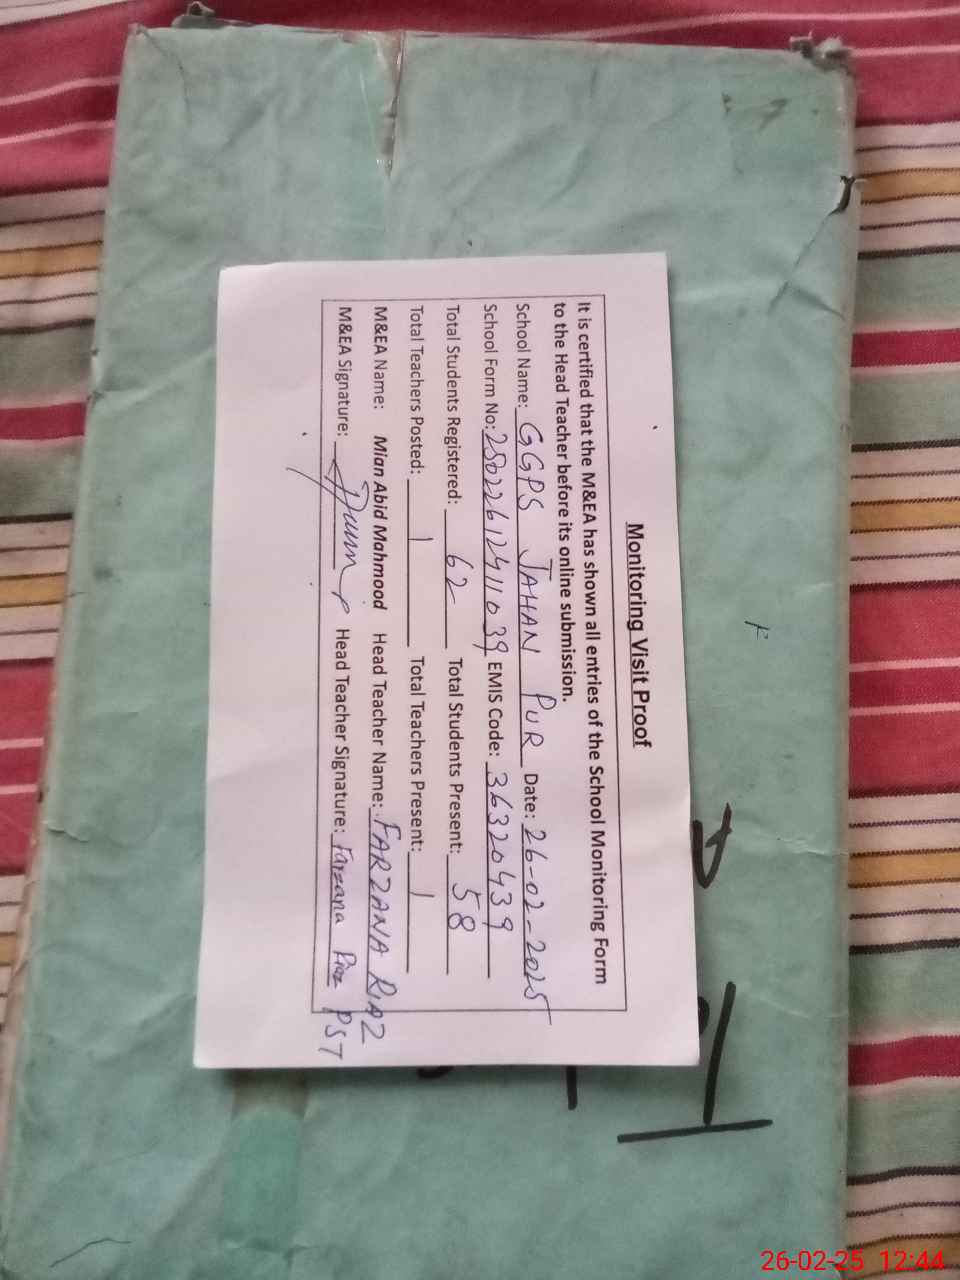 Monitoring Visit Proof
It is certified that the M&EA has shown all entries of the School Monitoring Form
to the Head Teacher before its online submission.
School Name: GGPS JAHAN PUR Date: 26-02-2025
School Form No: 250226124111039 EMIS Code: 36320439
Total Students Registered: 62 Total Students Present: 58
Total Teachers Posted: 1 Total Teachers Present: 1
M&EA Name: Mian Abid Mahmood Head Teacher Name: FARZANA RIAZ
M&EA Signature: Head Teacher Signature: Farzana Riaz PST
26-02-25 12:44